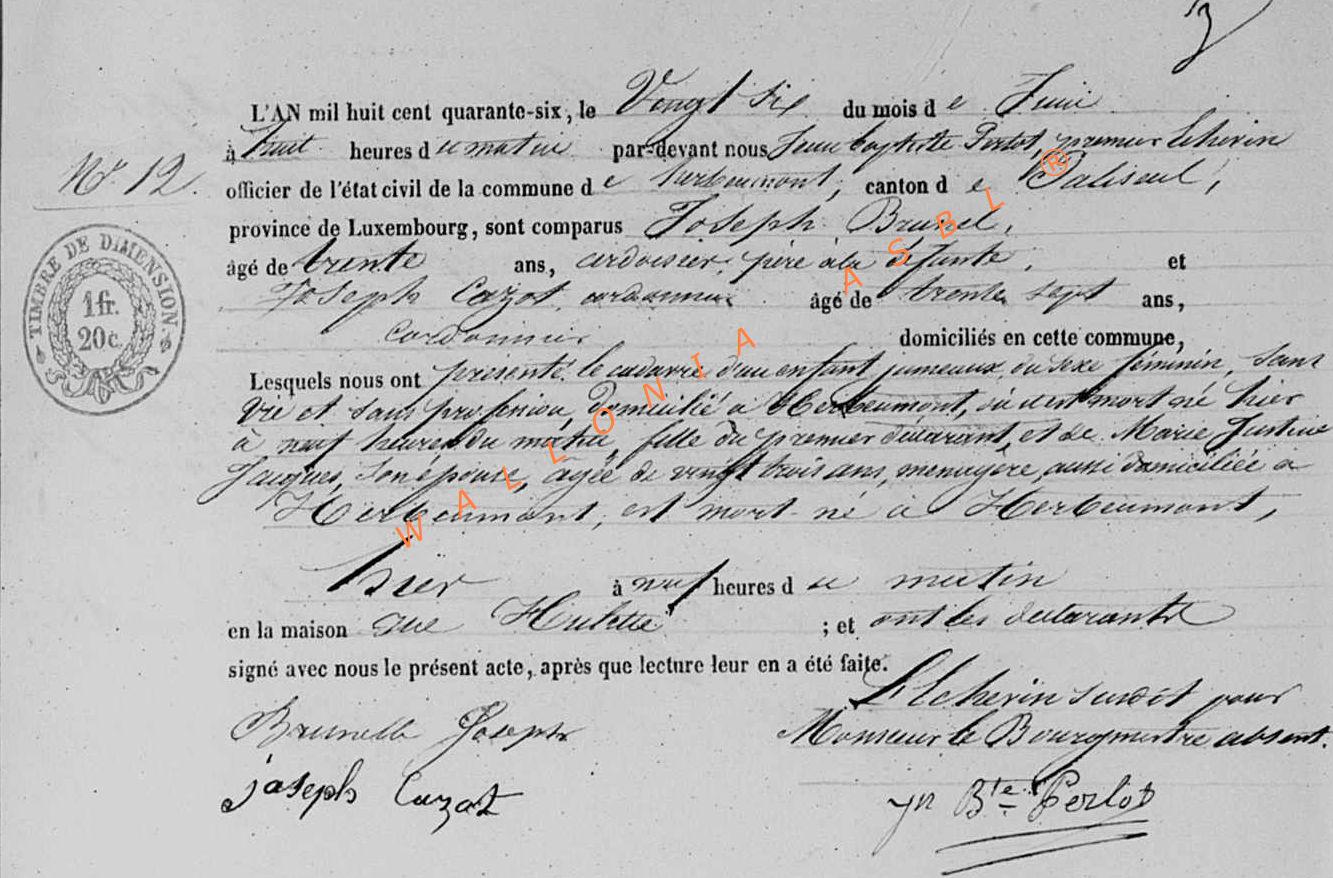 3
L'AN mil huit cent quarante-six, le Vingt six du mois de Juin
à huit heures du matin par-devant nous Jean baptiste Perlot, premier Echevin
N° 12.
officier de l'état civil de la commune de herbeumont, canton de Paliseul,
province de Luxembourg, sont comparus Joseph Brunel,
âgé de trente ans, ardoisier, père à la défunte, et
Joseph Cazot, cordonnier âgé de trente sept ans,
cordonnier domiciliés en cette commune,
Lesquels nous ont présenté le cadavre d'un enfant jumeaux, du sexe féminin, sans
vie et sans profession, domicilié à Herbeumont, où il est mort né hier
à neuf heures du matin, fille du premier déclarant, et de Marie Justine
Jacques, son épouse, agée de vingt trois ans, menagère, aussi domiciliée à
Herbeumont, est mort né à Herbeumont,
hier à neuf heures du matin
en la maison ; et ont les déclarants
signé avec nous le présent acte, après que lecture leur en a été faite.
L'Echevin susdit pour
Brunelle Joseph
Monsieur le Bourgmestre absent.
joseph Cazot
Jn Bte Perlot
TIMBRE DE DIMENSION.
1 fr.
20 c.
WALLONIA ASBL ®